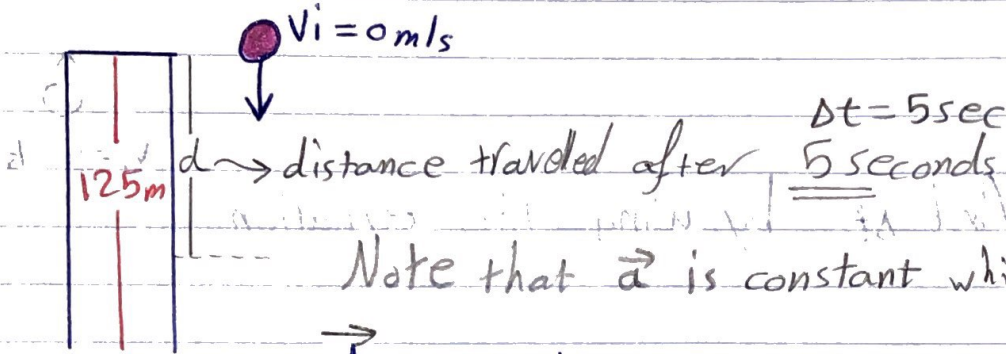 Vi = 0 m/s
Δt = 5 sec
d → distance traveled after 5 seconds
125m
Note that a⃗ is constant whi